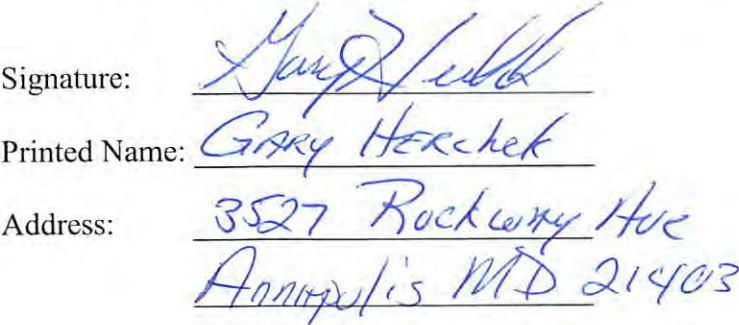 Signature: Gary Herchek
Printed Name: Gary Herchek
Address: 3527 Rockway Ave
Annapolis MD 21403